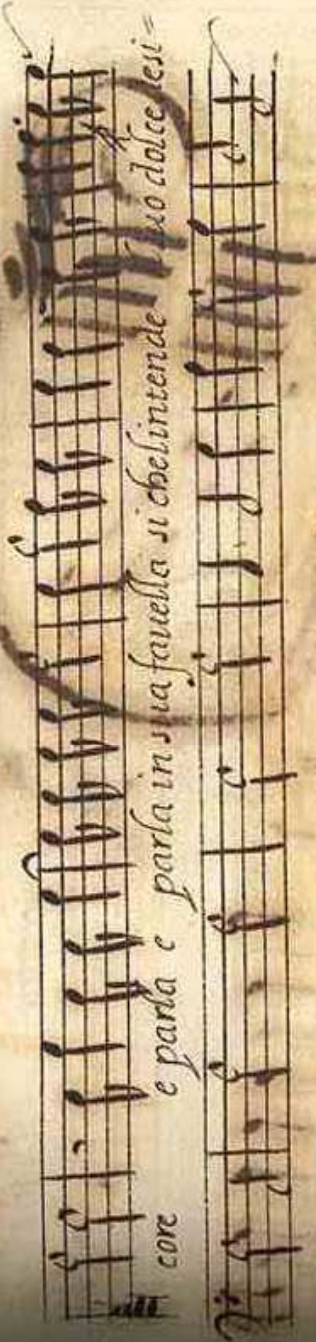 core e parla e parla in sua fauella si chel intende suo dolce desi=